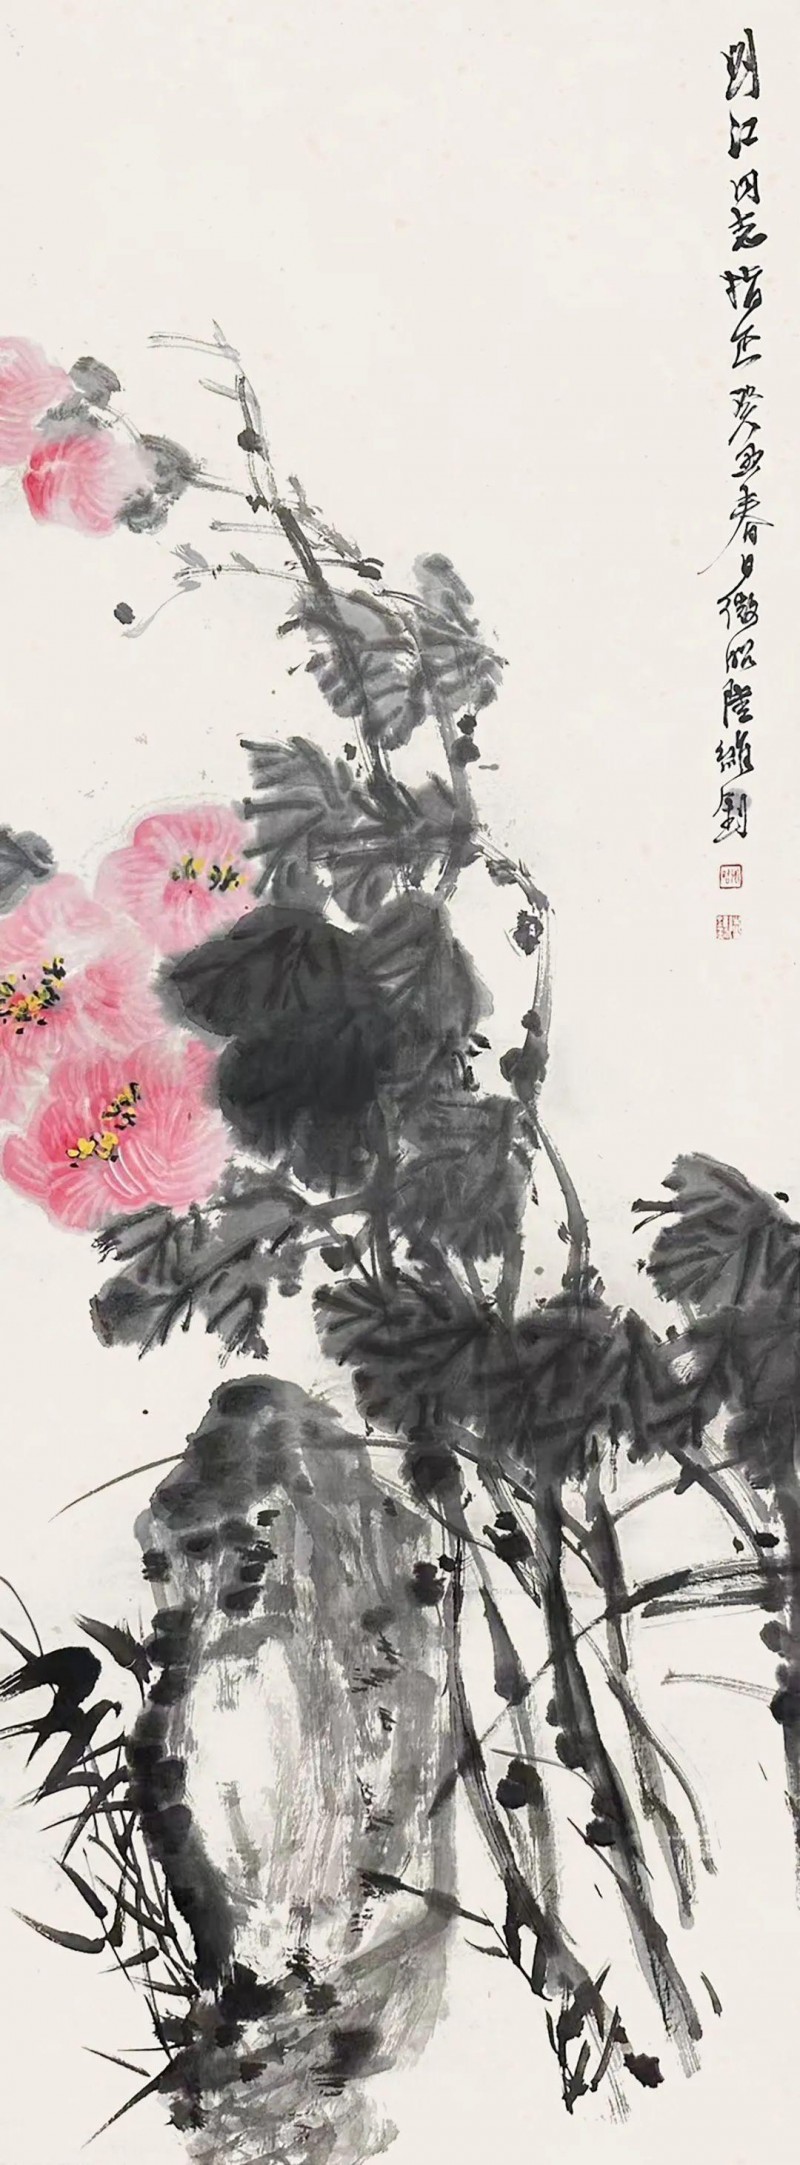 刘江同志指正癸丑春日微昭陆维钊